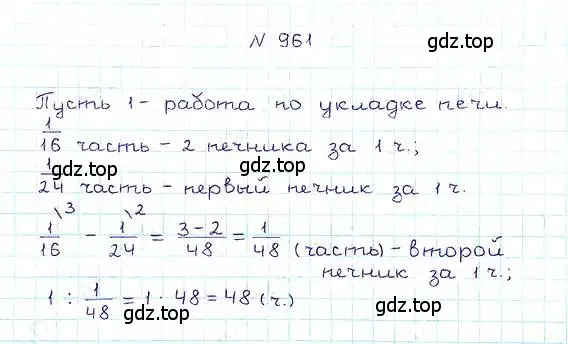 № 961
gdz.top
Пусть 1 - работа по укладке печи.
1/16 часть - 2 печника за 1 ч.;
gdz.top gdz.top
1/24 часть - первый печник за 1 ч.
1/16 \3 - 1/24 \2 = 3-2/48 = 1/48 (часть) - второй
печник за 1 ч.;
1 : 1/48 = 1 · 48 = 48 (ч.)
gdz.top gdz.top